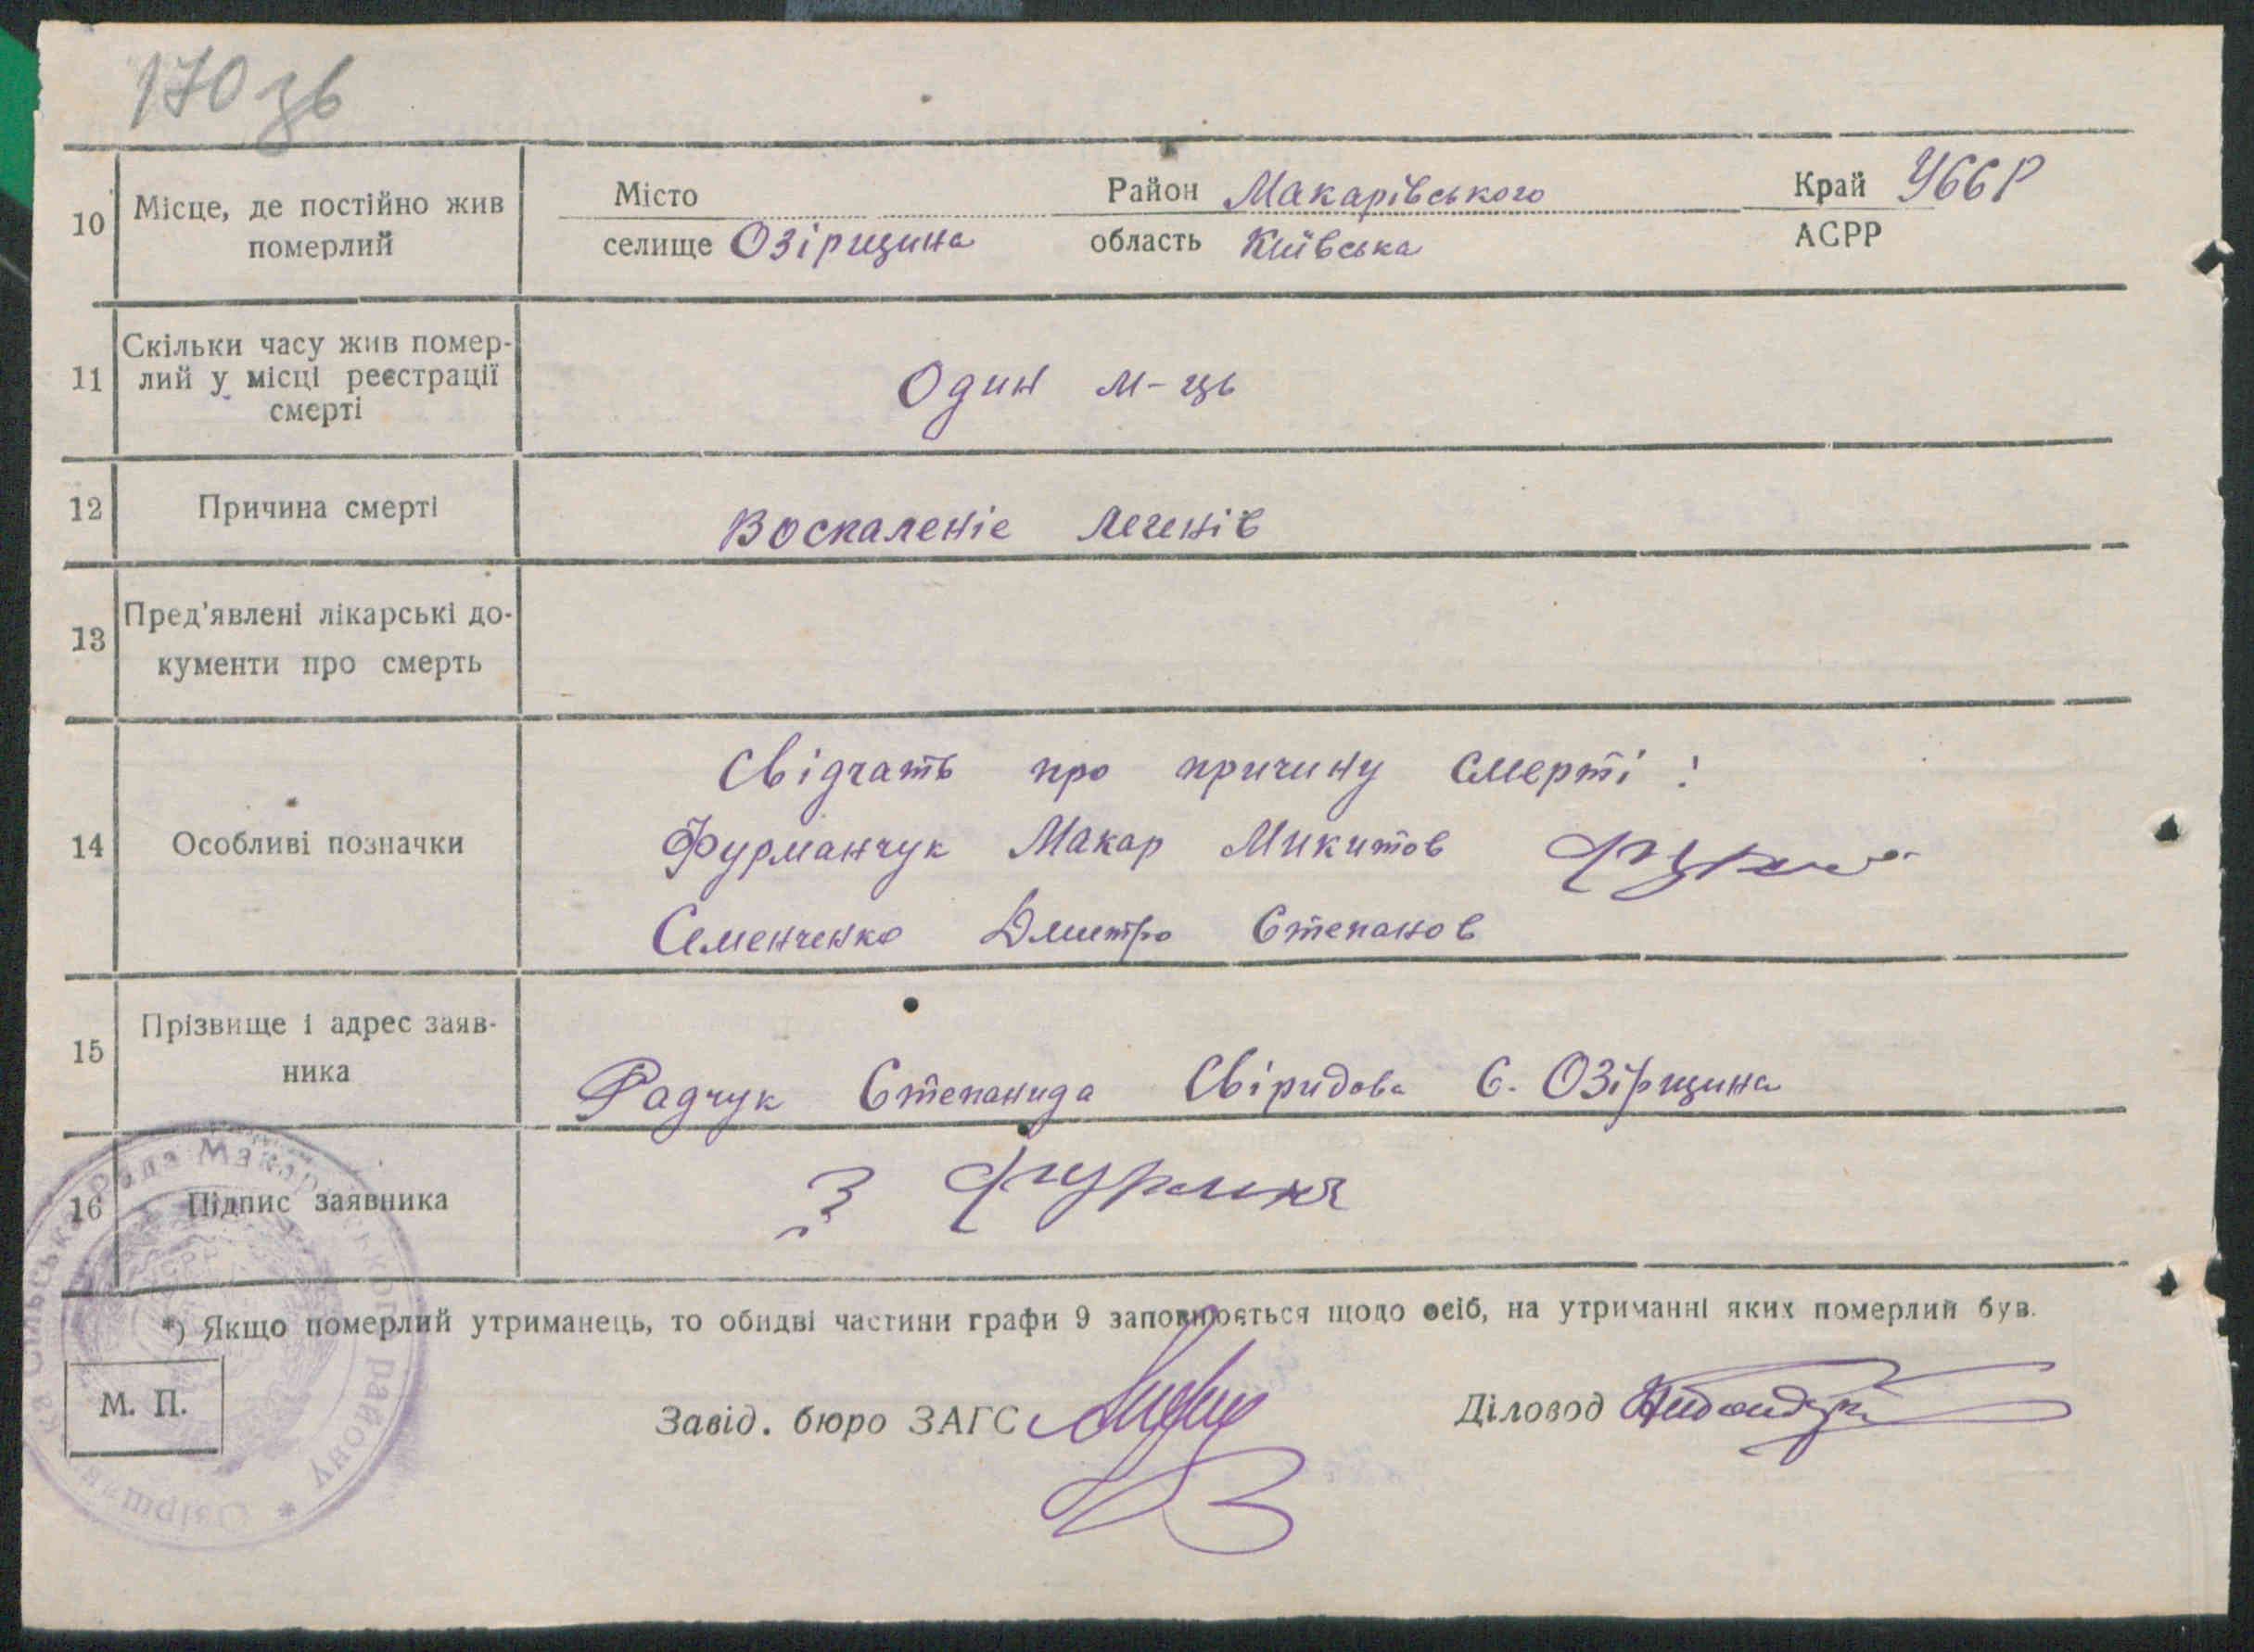 170 зв
10 Місце, де постійно жив померлий
Місто Район Макарівського Край УССР
селище Озірщина область Київська АСРР
11 Скільки часу жив помер-
лий у місці реєстрації
смерті
Один м-ць
12 Причина смерті Воспаленіе легенів
13 Пред'явлені лікарські до-
кументи про смерть
14 Особливі позначки
Свідчать про причину смерті:
Фурманчук Макар Микитов
Семенченко Дмитро Степанов
15 Прізвище і адрес заяв-
ника
Радчук Степанида Свіридова С. Озірщина
16 Підпис заявника
З Фурманч
*) Якщо померлий утриманець, то обидві частини графи 9 заповнюється щодо осіб, на утриманні яких померлий був.
М. П.
Завід. бюро ЗАГС
Діловод
Рада Макарівського району * Озірщин